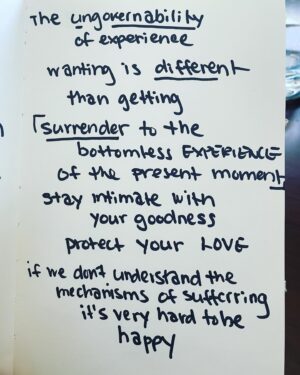 The ungovernability
of experience
wanting is different
than getting
surrender to the
bottomless EXPERIENCE
of the present moment
stay intimate with
your goodness
protect your LOVE
if we don't understand the
mechanisms of sufferring
it's very hard to be
happy